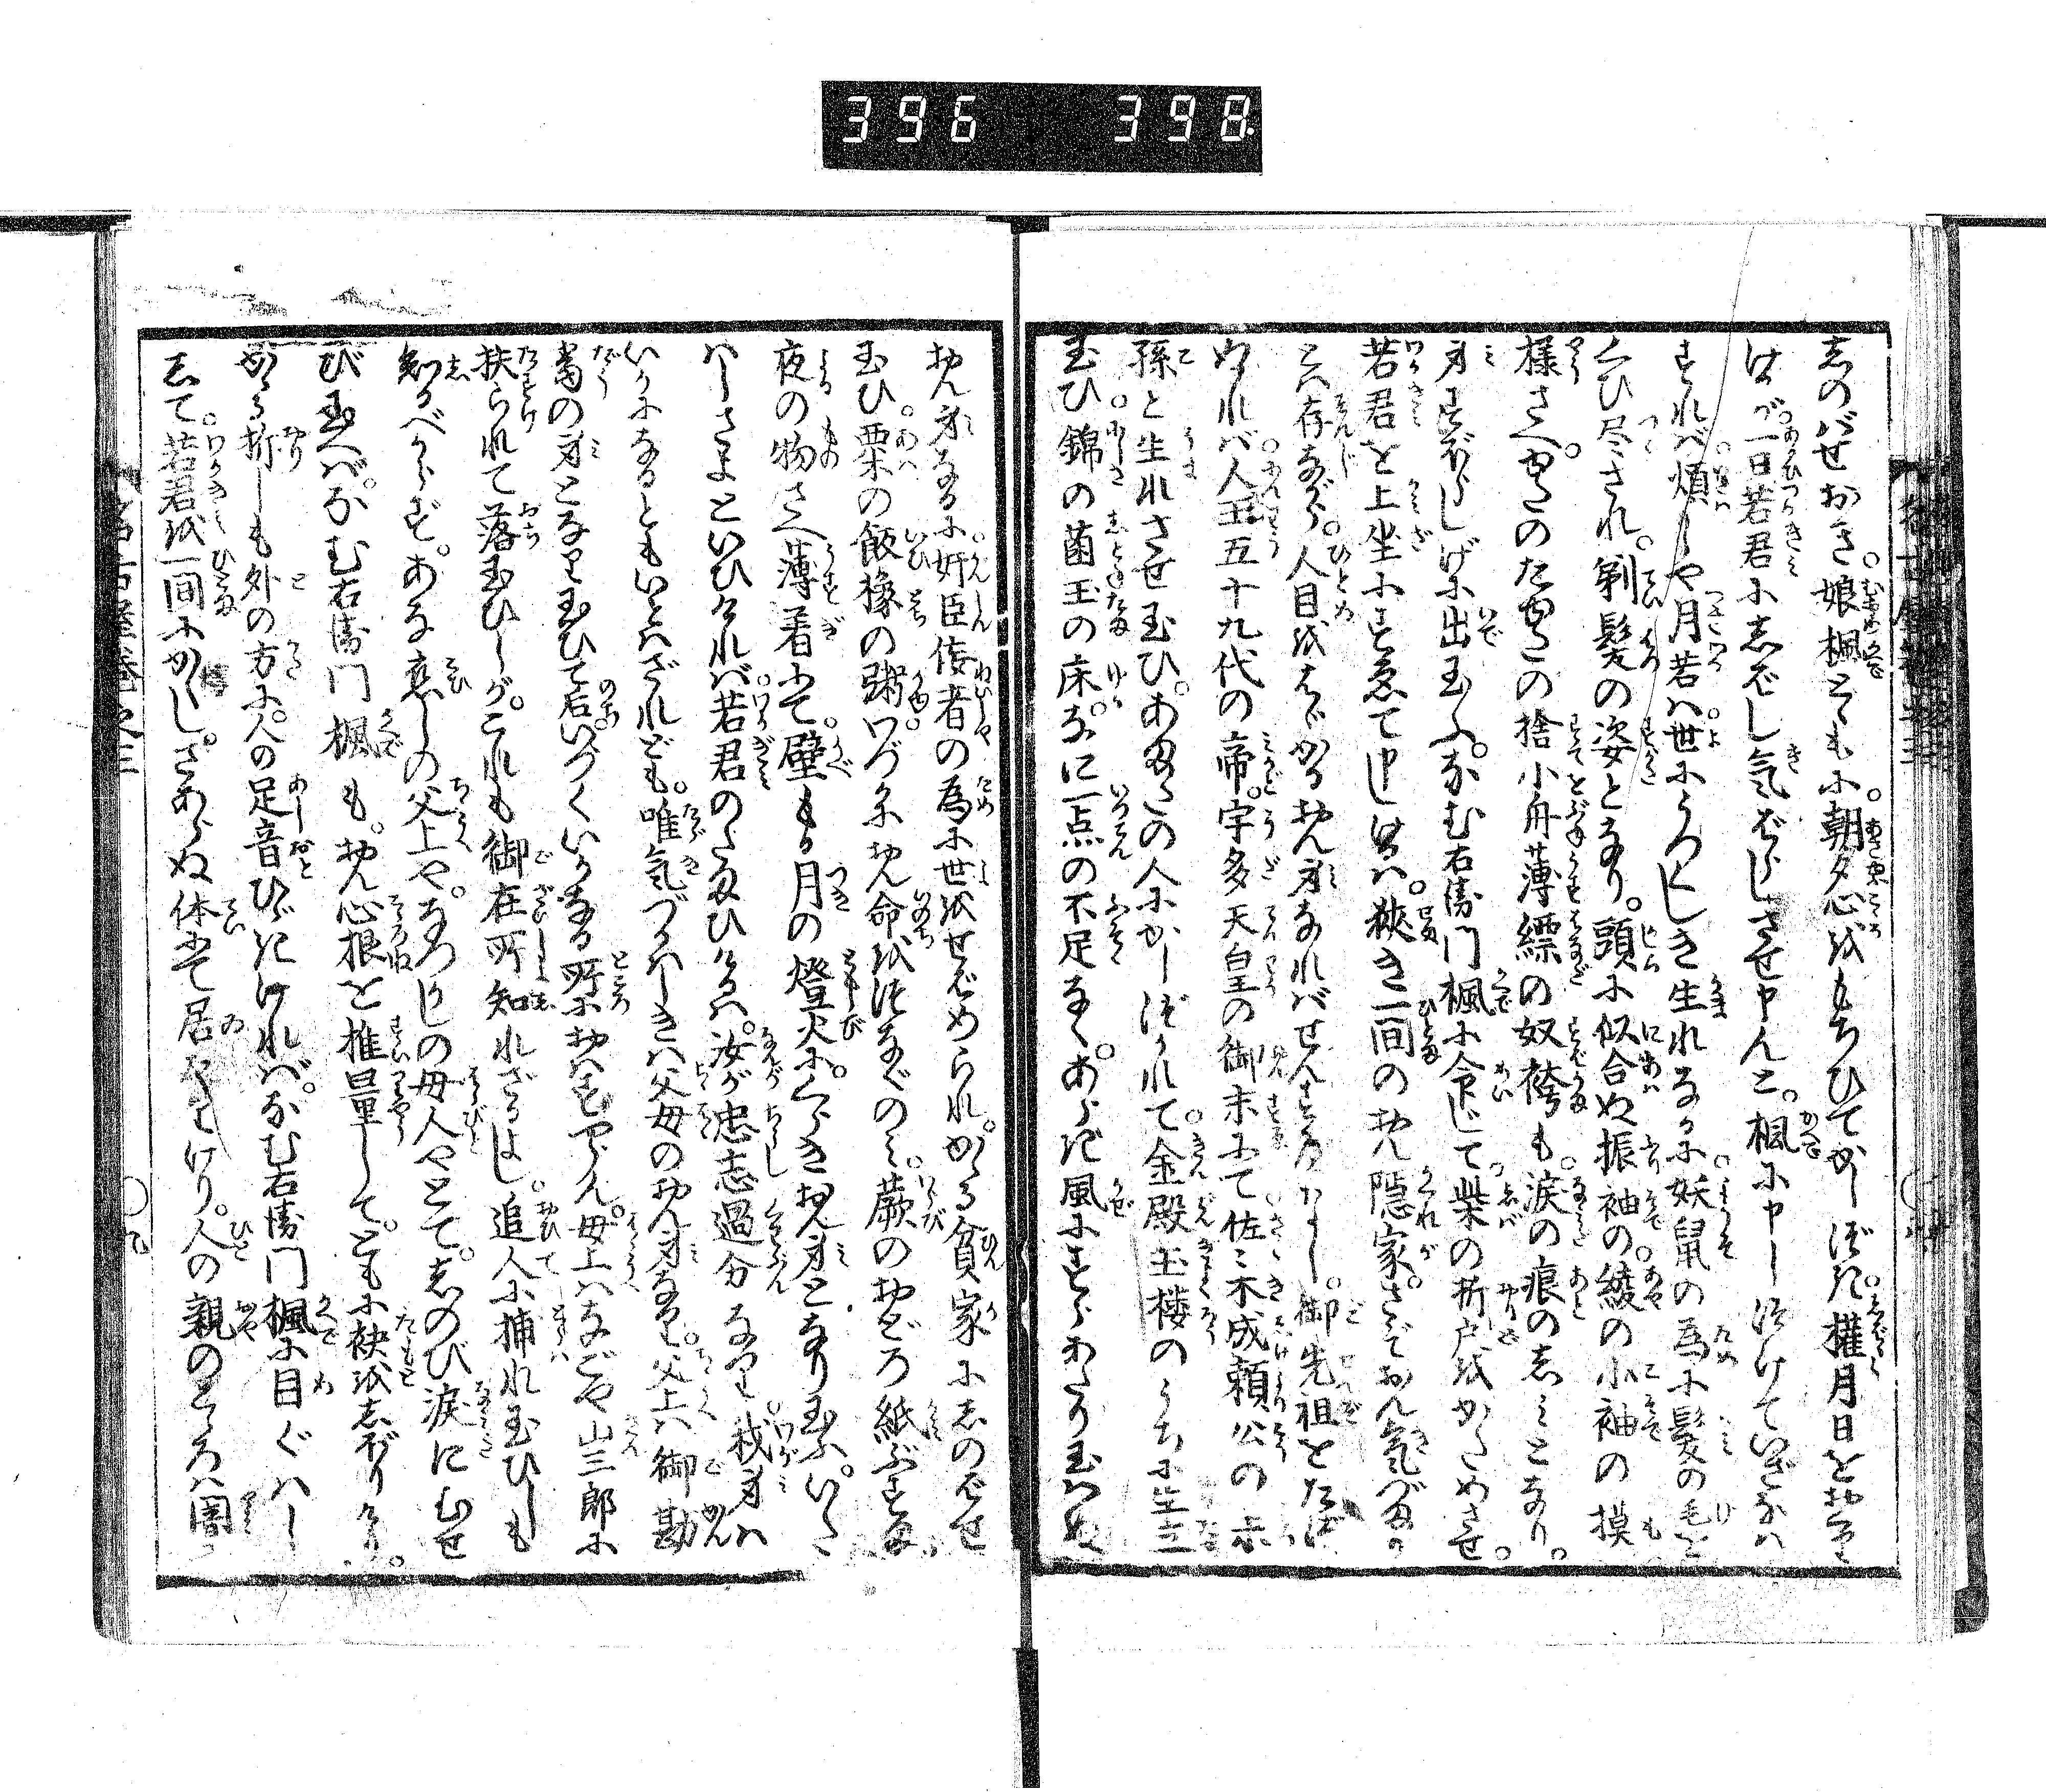 396 398
しのばせおき。娘楓ともに。朝夕心をもちひてかしづき。暫月日をおくり
けるが。一日若君に志ばし気ばらしさせ申んと。楓に申しつけていざなは
すれば。煩しや月若は。世にうつくしき生れなるに。妖鼠の為に髪の毛を
くひ尽され。剃髪の姿となり。頭に似合ぬ振袖の。綾の小袖の模
様さへ。やれのたぐひの捨小舟薄縹の奴袴も。涙の痕のしみとなり。
身すぼらしげに出玉ふ。なむ右衛門楓に令じて。柴の折戸をかためさせ。
若君を上坐にすゑて申しけるは。狭き一間のおん隠家。さぞおん気づまり
とは存ながら。人目をはゞかるおん身なればせんすべなし。御先祖をたづ
ぬれば。人王五十九代の帝。宇多天皇の御末にて。佐々木成頼公の
孫と生れさせ玉ひ。あまたの人にかしづかれて。金殿玉楼のうちに生立
玉ひ。錦の茵玉の床。なに一点の不足なく。あらき風にすらあたり玉はぬ
おん身なるに。奸臣佞者の為に世をせばめられ。かゝる貧家にしのばせ
玉ひ。粟の飯橡の粥。わづかにおん命をつなぐのみ。蕨のおどろ紙ぶすま。
夜の物さへ薄着にて。壁もる月の燈火に。くらきおん身となり玉ふ。いた
はしさよといひければ。若君のたまひけるは。汝が忠志過分なり。我身は
いかになるともいとはざれども。唯気づかはしきは父母のおん身なり。父上は御勘
当の身となり玉ひて后。いづくいかなる所におはすやらん。母上はなごや山三郎に
扶られて落玉ひしが。これも御在所知れざるよし。追人に捕れ玉ひしも
知るべからず。あな恋しの父上や。なつかしの母人やとて。しのび涙にむせ
び玉へば。なむ右衛門楓も。おん心根を推量して。ともに袂をしぼりけり。
かゝる折しも外の方に。人の足音ひゞきければ。なむ右衛門楓に目くはし
して。若君を一間にかくし。さあらぬ体にて居たりけり。人の親のこゝろは闇